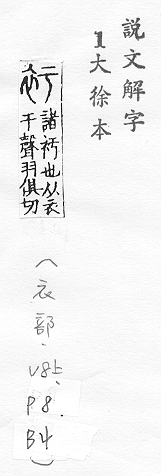 説文解字
1大徐本
衧
諸衧也从衣
于聲羽俱切
(衣部、V8上、P8.B4)